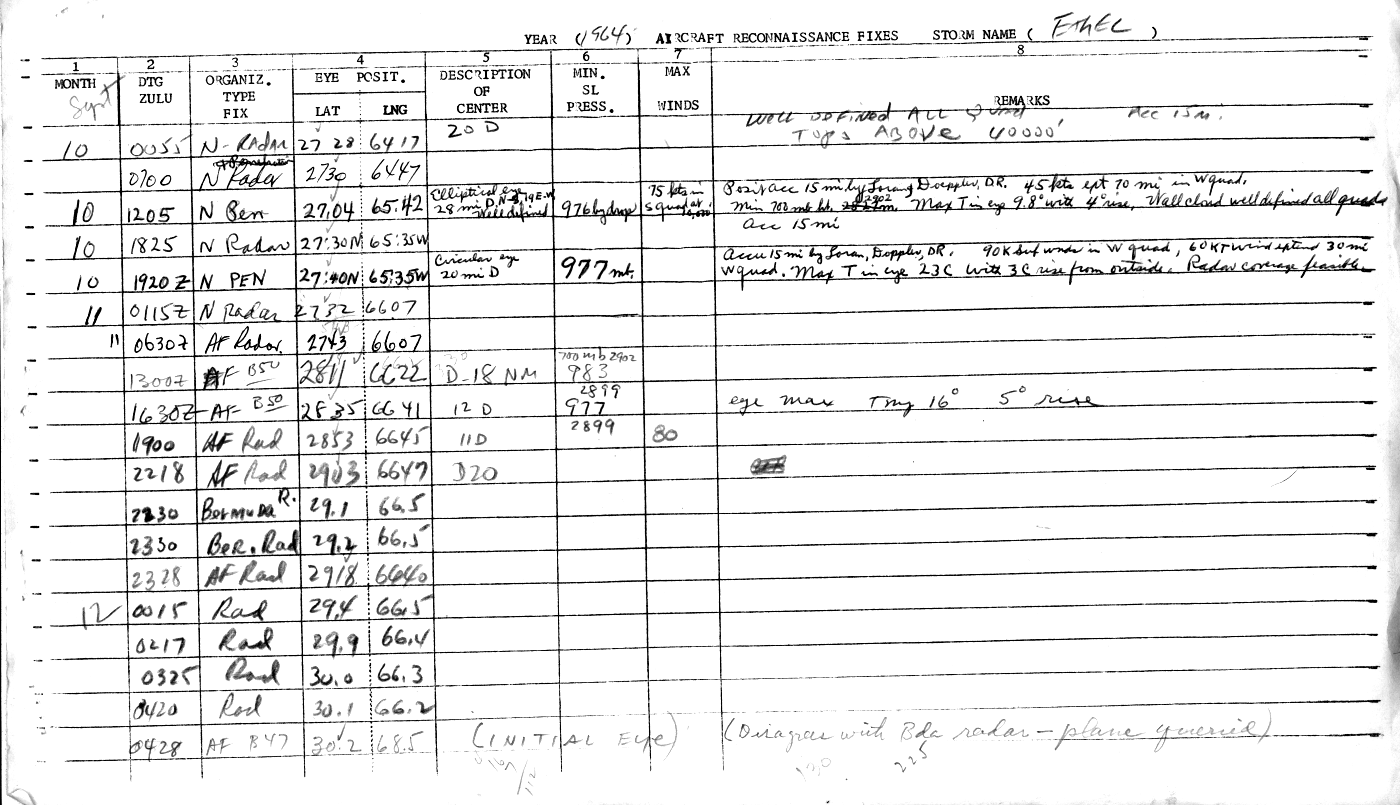 YEAR (1964) AIRCRAFT RECONNAISSANCE FIXES STORM NAME ( EtHEL )
1 2 3 4 5 6 7 8
MONTH DTG ZULU ORGANIZ. TYPE FIX EYE POSIT. LAT LNG DESCRIPTION OF CENTER MIN. SL PRESS. MAX WINDS REMARKS
Sept
10 0055 N-RADAR 27 28 6417 20 D WELL DEFINED ALL QUAD Acc 15 mi. TOPS ABOVE 40000'
0700 N Radar 2730 6447
10 1205 N Pen 27.04 65.42 Elliptical eye 28 mi D, N-S, 19 E-W Well defined 976 by drop 75 kts in S quad at Posit acc 15 mi by Loran, Doppler, DR. 45 kts ept 70 mi in W quad.
Min 700 mb ht. 2902 m Max T in eye 9.8° with 4° rise, Wall cloud well defined all quads
Acc 15 mi
10 1825 N Radar 27:30N 65:35W
10 1920Z N PEN 27:40N 65:35W Circular eye 20 mi D 977 mb. Accu 15 mi by Loran, Doppler, DR. 90K Surf winds in W quad, 60 KT wind extend 30 mi
W quad. Max T in eye 23C With 3C rise from outside. Radar coverage feasible
11 0115Z N Radar 2732 6607
11 0630Z AF Radar. 2743 6607
1300Z AF B50 2811 6622 D-18 NM 700 mb 2902 983
1630Z AF B50 2835 6641 12 D 2899 977 eye max Tmp 16° 5° rise
1900 AF Rad 2853 6645 11D 2899 80
2218 AF Rad 2903 6647 D20
2230 Bermuda R. 29.1 66.5
2330 Ber. Rad 29.2 66.5
2328 AF Rad 2918 6640
12 0015 Rad 29.4 66.5
0217 Rad 29.9 66.4
0325 Rad 30.0 66.3
0420 Rad 30.1 66.2
0428 AF B47 30.2 68.5 (INITIAL EYE) (Disagrees with Bda radar - plane queried)
130 225